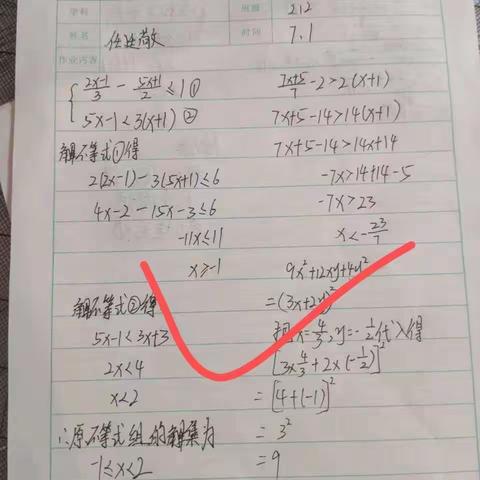 学科
班级 212
姓名
时间 7.1
作业内容
{ (2x-1)/3 - (5x+1)/2 ≤ 1 ①
5x-1<3(x+1) ②
解不等式①得
2(2x-1)-3(5x+1)≤6
4x-2-15x-3≤6
-11x≤11
x≥-1
解不等式②得
5x-1<3x+3
2x<4
x<2
∴原不等式组的解集为
-1≤x<2
(7x+5)/7 -2>2(x+1)
7x+5-14>14(x+1)
7x+5-14>14x+14
-7x>14+14-5
-7x>23
x<-23/7
9x²+12xy+4y²
=(3x+2y)²
把x=4/3,y=-1/2代入得
[3×4/3+2×(-1/2)]²
=[4+(-1)]²
=3²
=9